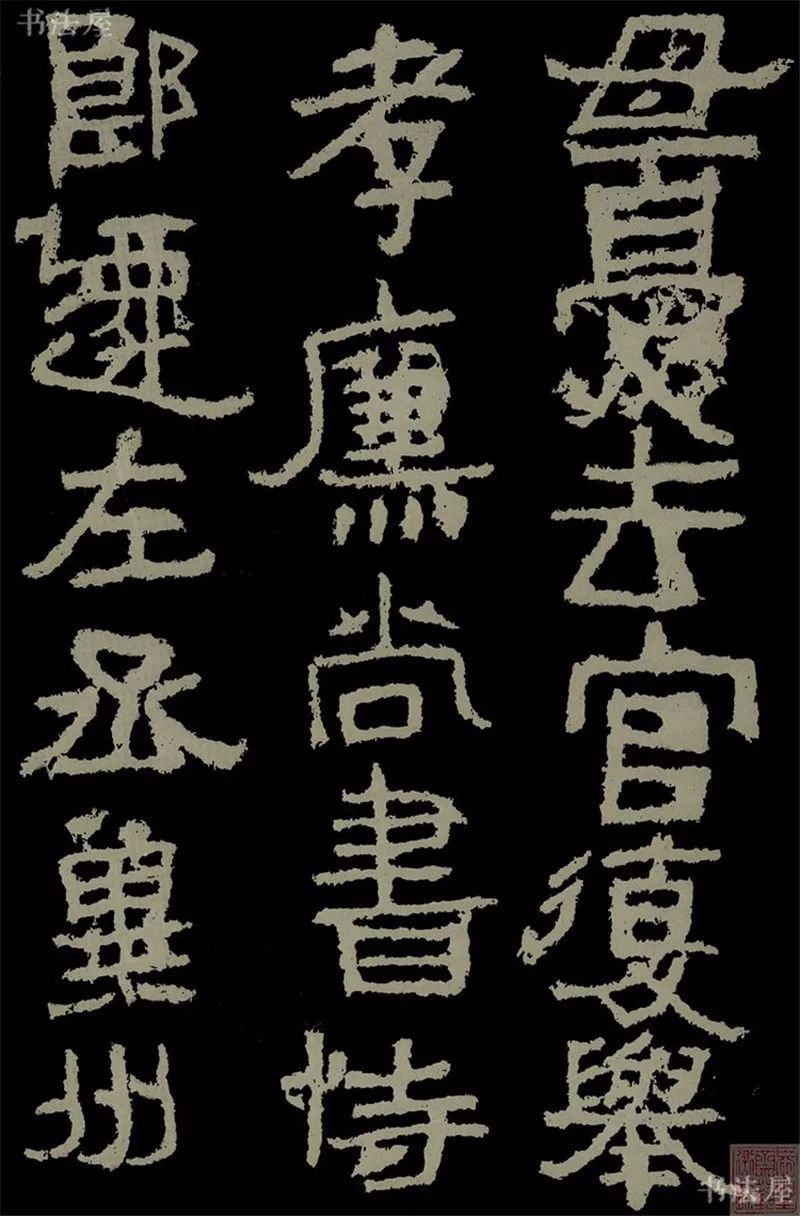 母憂去官復舉
孝廉尚書侍
郎遷左丞冀州
书法屋
书法屋